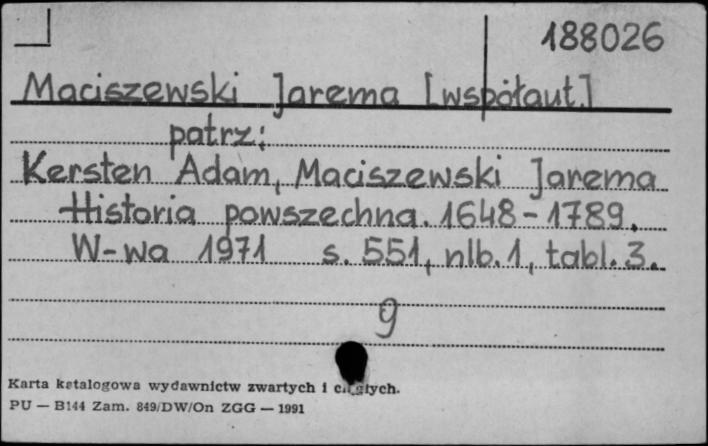 188026
Maciszewski Jarema [współaut.]
patrz:
Kersten Adam, Maciszewski Jarema
Historia powszechna. 1648-1789.
W-wa 1971 s. 551, nlb. 1, tabl. 3.
g
Karta katalogowa wydawnictw zwartych i ciągłych.
PU — B144 Zam. 849/DW/On ZGG — 1991